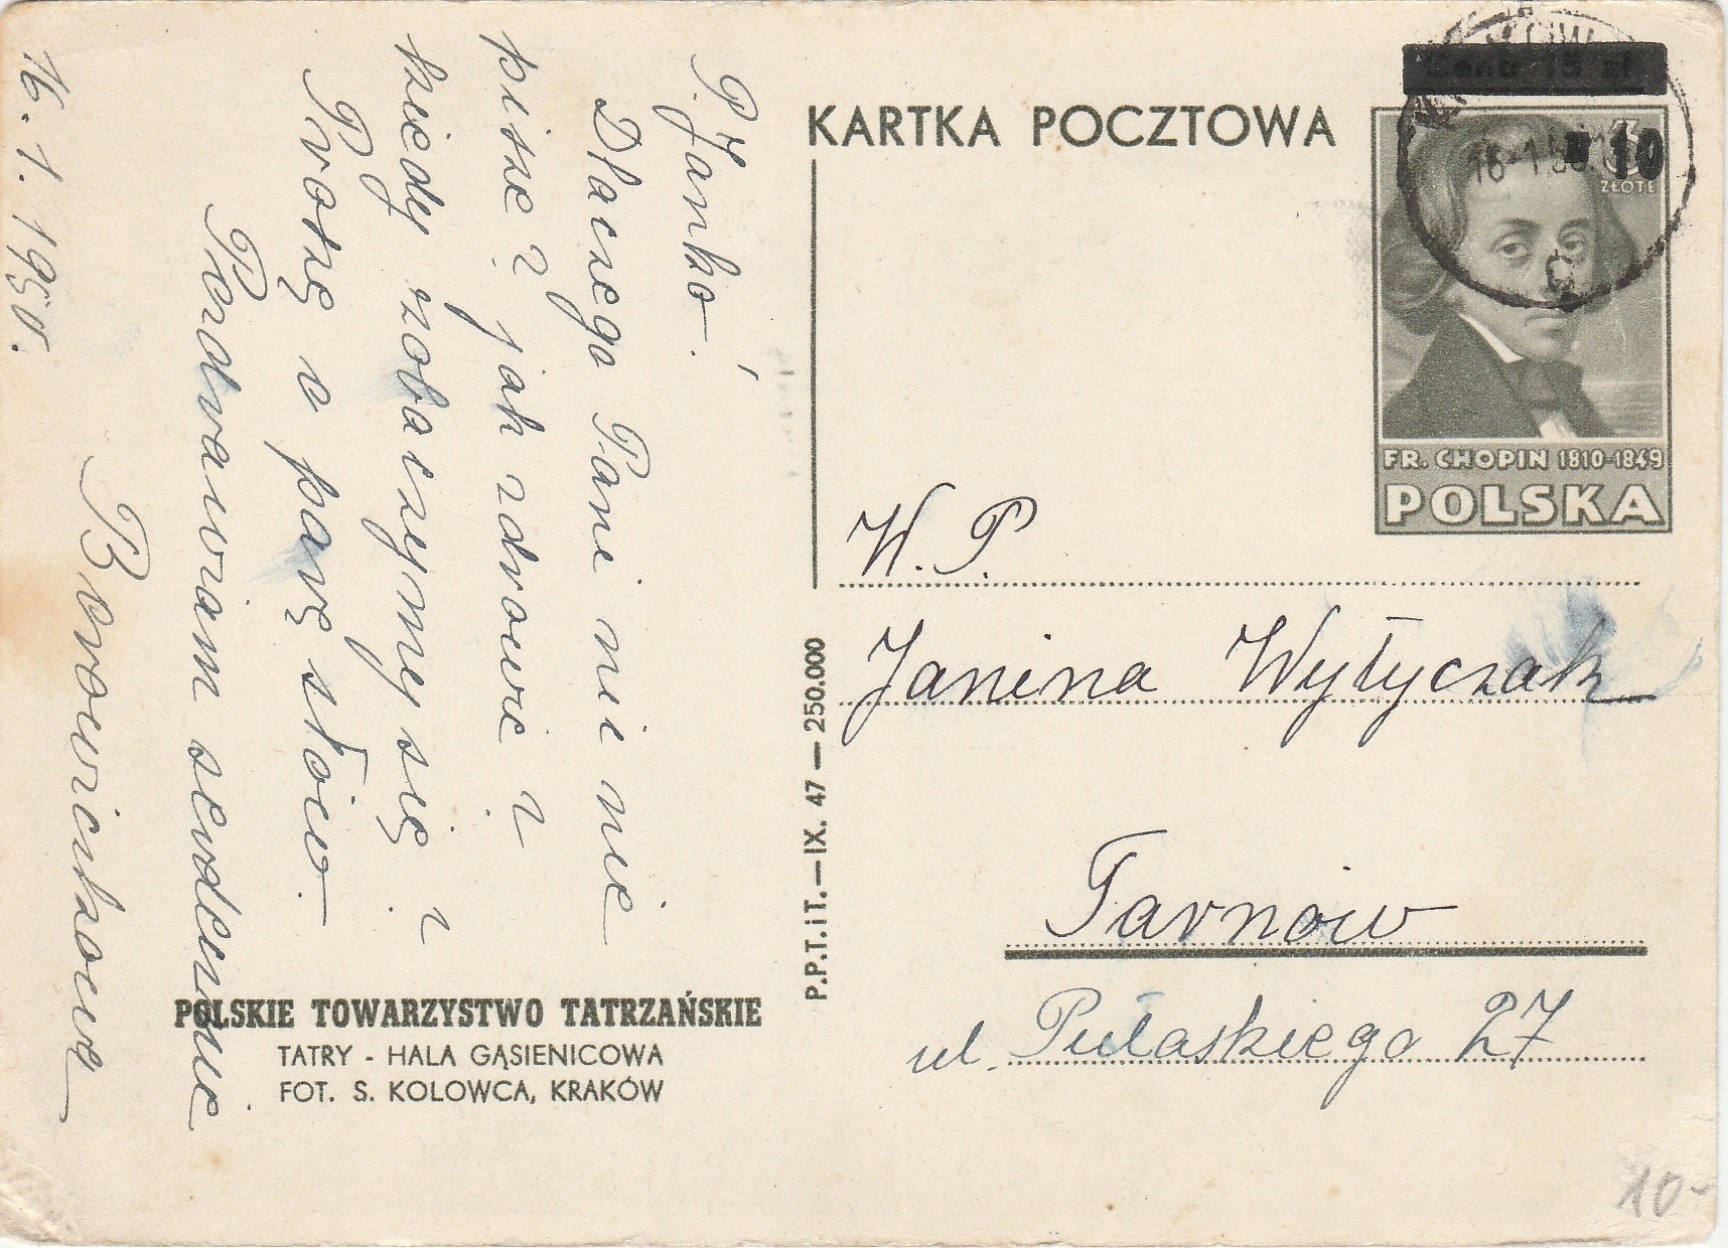 P. Janko.
Dlaczego Pani nic nie
pisze? jak zdrowie?
kiedy zobaczymy się?
Proszę o parę słów.
Pozdrawiam serdecznie
Borowiczkowa
16.1.1950.
POLSKIE TOWARZYSTWO TATRZAŃSKIE
TATRY - HALA GĄSIENICOWA
FOT. S. KOLOWCA, KRAKÓW
P.P.T.iT.—IX. 47 — 250.000
KARTKA POCZTOWA
Cena 15 zł.
16-1.50
10
3
ZŁOTE
FR. CHOPIN 1810-1849
POLSKA
W. P.
Janina Wytyczak
Tarnów
ul. Pułaskiego 27
10-